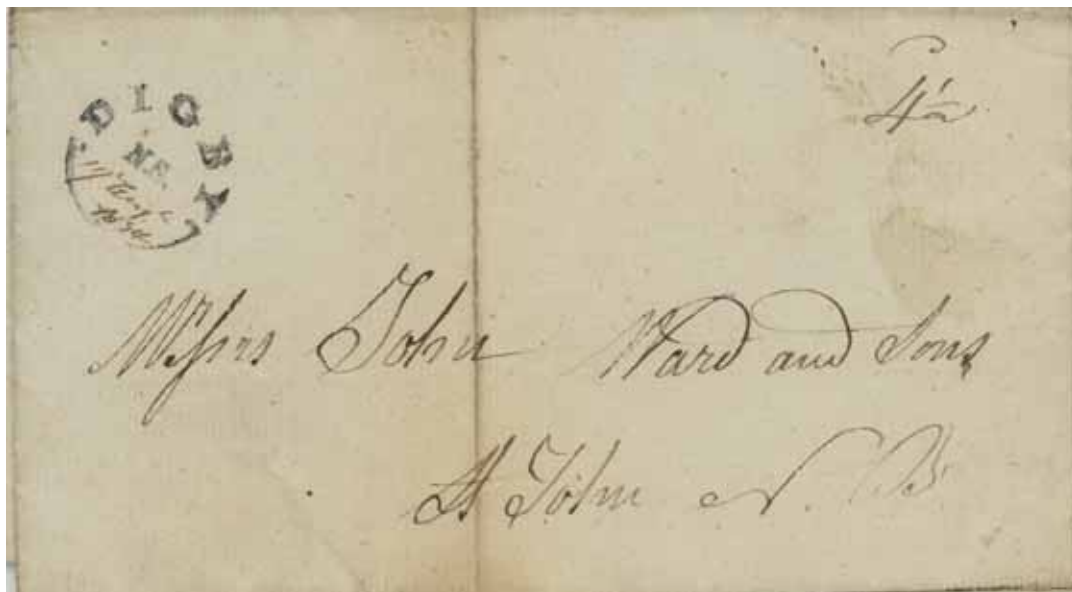 DIGBY
NS.
4½
Messrs John Ward and Sons
St John N. B